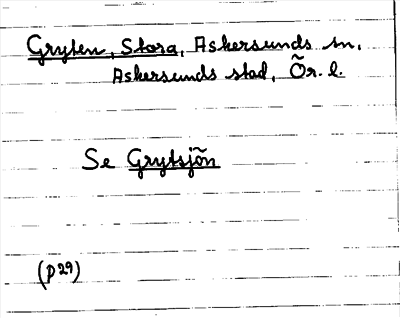 Gryten, Stora, Askersunds sn,
Askersunds stad, Ör. l.
Se Grytsjön
(p 29)